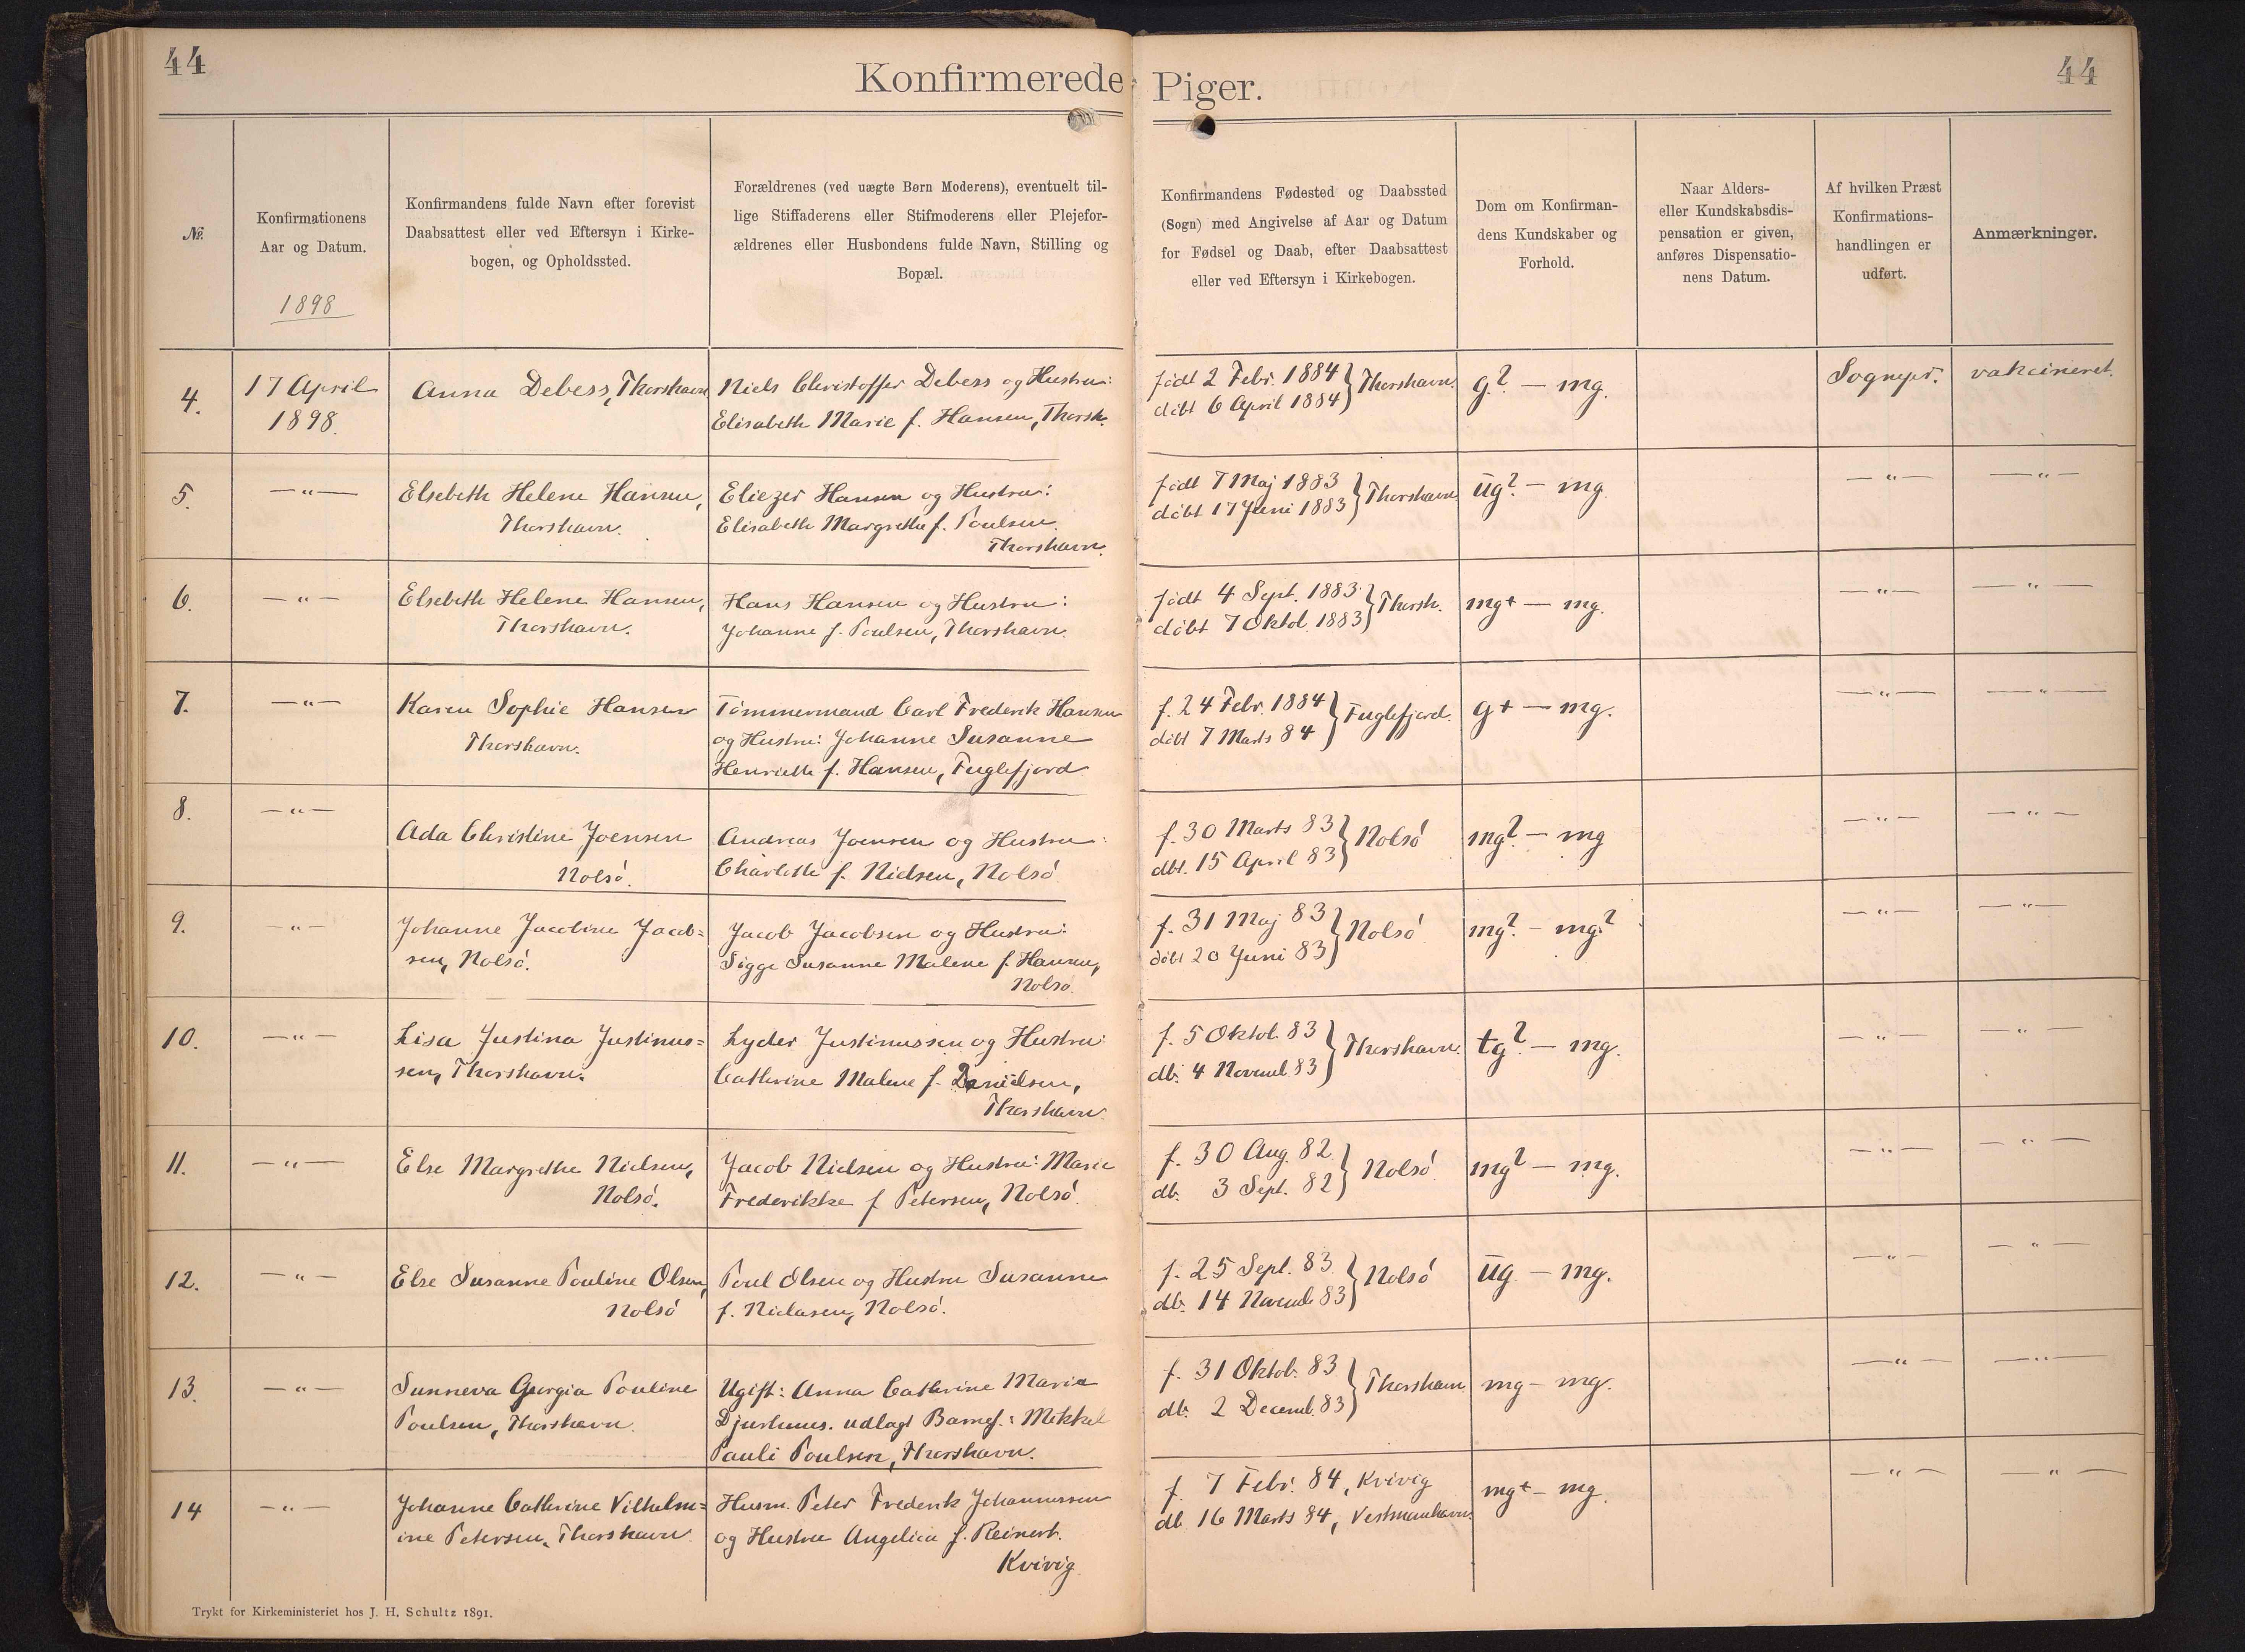 44
Konfirmerede Piger.
44
№.
Konfirmationens
Aar og Datum.
1898
Konfirmandens fulde Navn efter forevist
Daabsattest eller ved Eftersyn i Kirke-
bogen, og Opholdssted.
Forældrenes (ved uægte Børn Moderens), eventuelt til-
lige Stiffaderens eller Stifmoderens eller Plejefor-
ældrenes eller Husbondens fulde Navn, Stilling og
Bopæl.
Konfirmandens Fødested og Daabssted
(Sogn) med Angivelse af Aar og Datum
for Fødsel og Daab, efter Daabsattest
eller ved Eftersyn i Kirkebogen.
Dom om Konfirman-
dens Kundskaber og
Forhold.
Naar Alders-
eller Kundskabsdis-
pensation er given,
anføres Dispensatio-
nens Datum.
Af hvilken Præst
Konfirmations-
handlingen er
udført.
Anmærkninger.
4.
17 April
1898.
Anna Debess, Thorshavn
Niels Christoffer Debess og Hustru:
Elisabeth Marie f. Hansen, Thorsh.
født 2 Febr. 1884
døbt 6 April 1884 } Thorshavn.
g? — mg.
Sognepr.
vakcineret.
5.
—„—
Elsebeth Helene Hansen,
Thorshavn.
Eliezer Hansen og Hustru:
Elisabeth Margrethe f. Poulsen.
Thorshavn.
født 7 Maj 1883
døbt 17 Juni 1883 } Thorshavn
ūg? — mg.
—„—
—„—
6.
—„—
Elsebeth Helene Hansen,
Thorshavn.
Hans Hansen og Hustru:
Johanne f. Poulsen, Thorshavn.
født 4 Sept. 1883.
døbt 7 Oktob. 1883 } Thorsh.
mg+ — mg.
—„—
—„—
7.
—„—
Karen Sophie Hansen
Thorshavn.
Tømmermand Carl Frederik Hansen
og Hustru: Johanne Susanne
Henriette f. Hansen, Fuglefjord
f. 24 Febr. 1884
døbt 7 Marts 84 } Fuglefjord.
g+ — mg.
—„—
—„—
8.
—„—
Ada Christine Joensen
Nolsø.
Andreas Joensen og Hustru:
Charlotte f. Nielsen, Nolsø
f. 30 Marts 83
dbt. 15 April 83 } Nolsø
mg? — mg
—„—
—„—
9.
—„—
Johanne Jacobine Jacob=
sen, Nolsø.
Jacob Jacobsen og Hustru:
Sigge Susanne Malene f. Hansen,
Nolsø.
f. 31 Maj 83
døbt 20 Juni 83 } Nolsø
mg? — mg?
—„—
—„—
10.
—„—
Lisa Justina Justinus=
sen, Thorshavn.
Lyder Justinussen og Hustru:
Cathrine Malene f. Danielsen,
Thorshavn.
f. 5 Oktob. 83
db. 4 Novemb. 83 } Thorshavn.
tg? — mg.
—„—
—„—
11.
—„—
Else Margrethe Nielsen,
Nolsø.
Jacob Nielsen og Hustru: Marie
Frederikke f. Petersen, Nolsø.
f. 30 Aug. 82.
db. 3 Sept. 82 } Nolsø
mg? — mg.
—„—
—„—
12.
—„—
Else Susanne Pouline Olsen,
Nolsø
Poul Olsen og Hustru Susanne
f. Niclasen, Nolsø.
f. 25 Sept. 83.
db. 14 Novemb 83 } Nolsø
ūg — mg.
—„—
—„—
13.
—„—
Sunneva Georgia Pouline
Poulsen, Thorshavn.
Ugift: Anna Cathrine Maria
Djurhuus. udlagt Barnef.: Mikkel
Pauli Poulsen, Thorshavn.
f. 31 Oktob. 83
db. 2 Decemb. 83 } Thorshavn.
mg — mg.
—„—
—„—
14
—„—
Johanne Cathrine Vilhelm=
ine Petersen, Thorshavn.
Husm. Peter Frederik Johannessen
og Hustru Angelica f. Reinert.
Kvivig
f. 7 Febr. 84, Kvivig
db. 16 Marts 84, Vestmanhavn.
mg+ — mg.
—„—
—„—
Trykt for Kirkeministeriet hos J. H. Schultz 1891.